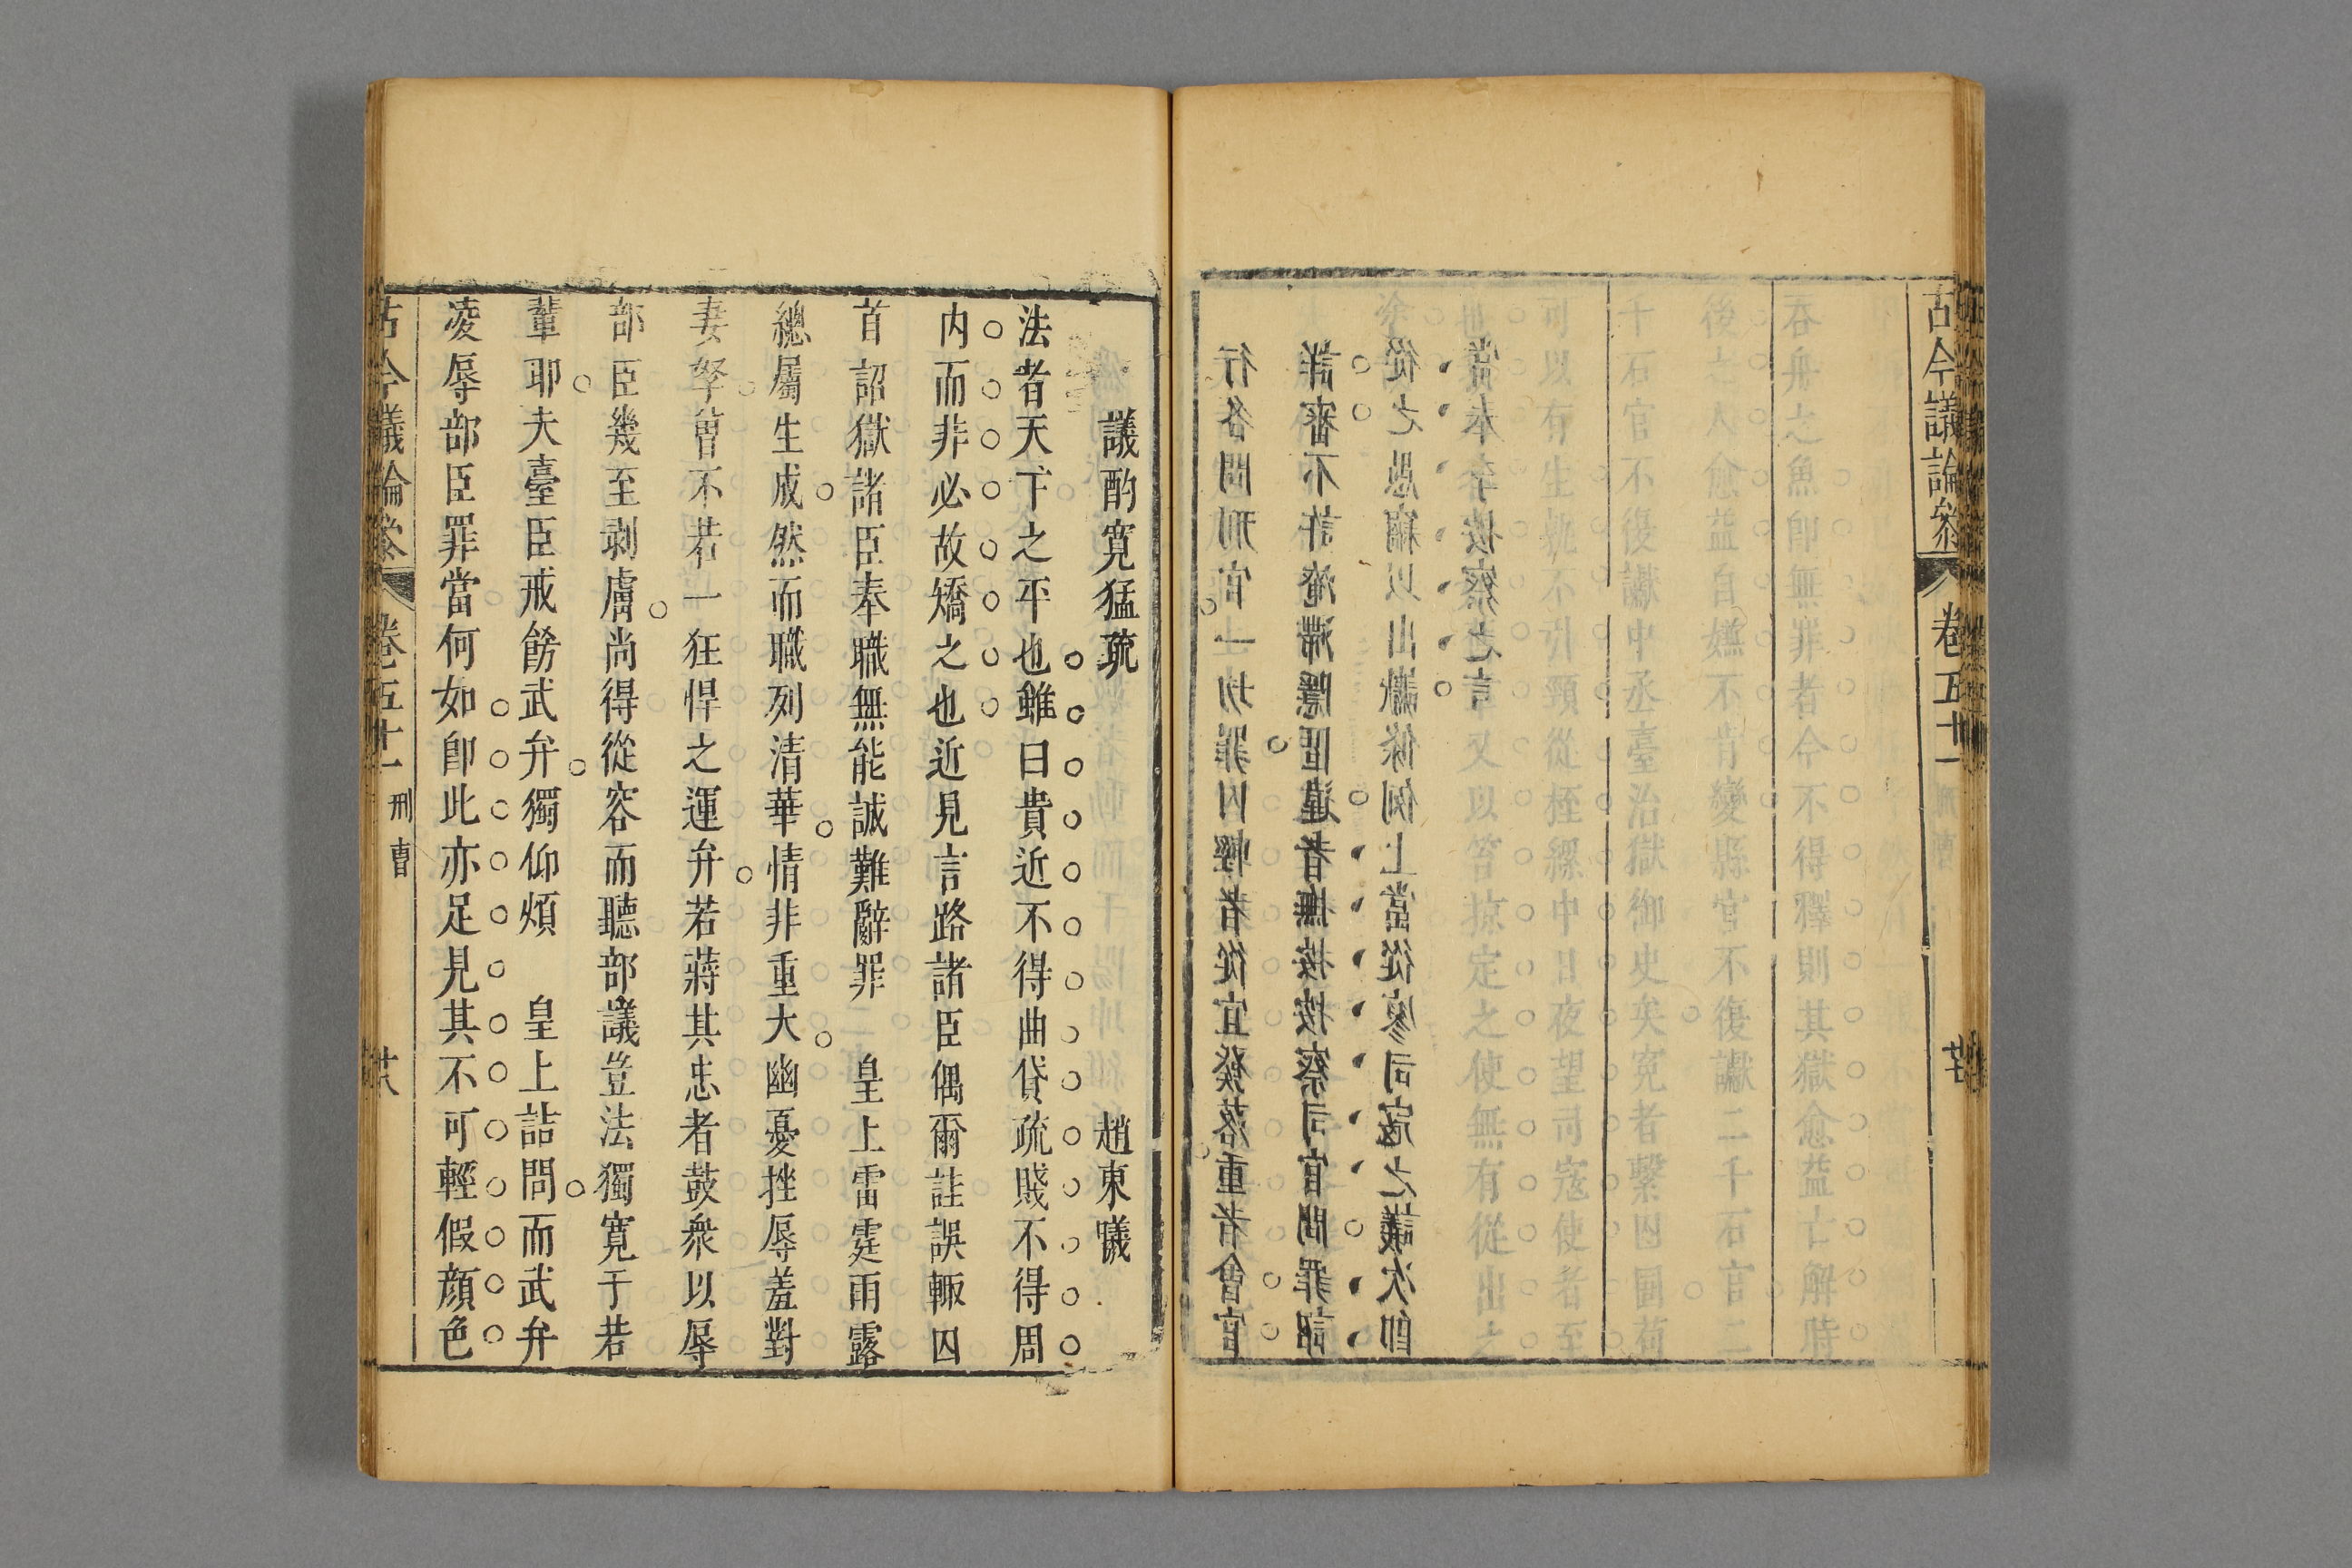 古今議論參 卷五十一 刑曹
吞舟之魚卽無罪者今不得釋則其獄愈益亡解時
後之人愈益自不肯變縣官不復讞二千石官二
千石官不復讞中丞臺治獄御史矣冤者繫囚圄荷
可以有生不引頸從桎縲中日夜望司寇使者至
又以笞掠定之使無有從出之
行各問刑官一切罪囚輕者從宜發落重者會官
詳審不許淹滯隱匿違者撫按按察司官問罪詔
從之愚竊以出讞條例上當從廖司寇之議次卽
當本按察之言
議酌寬猛疏 趙東曦
法者天下之平也雖曰貴近不得曲貸疏賤不得周
内而非必故矯之也近見言路諸臣偶爾詿誤輙囚
首詔獄諸臣奉職無能誠難辭罪 皇上雷霆雨露
總屬生成然而職列清華情非重大幽憂挫辱羞對
妻孥曾不若一狂悍之運弁若蔣其忠者鼓衆以辱
部臣幾至剥膚尚得從容而聽部議豈法獨寛于若
輩耶夫臺臣戒餝武弁獨仰煩 皇上詰問而武弁
凌辱部臣罪當何如卽此亦足見其不可輕假顔色
古今議論參 卷五十一 刑曹 廿八